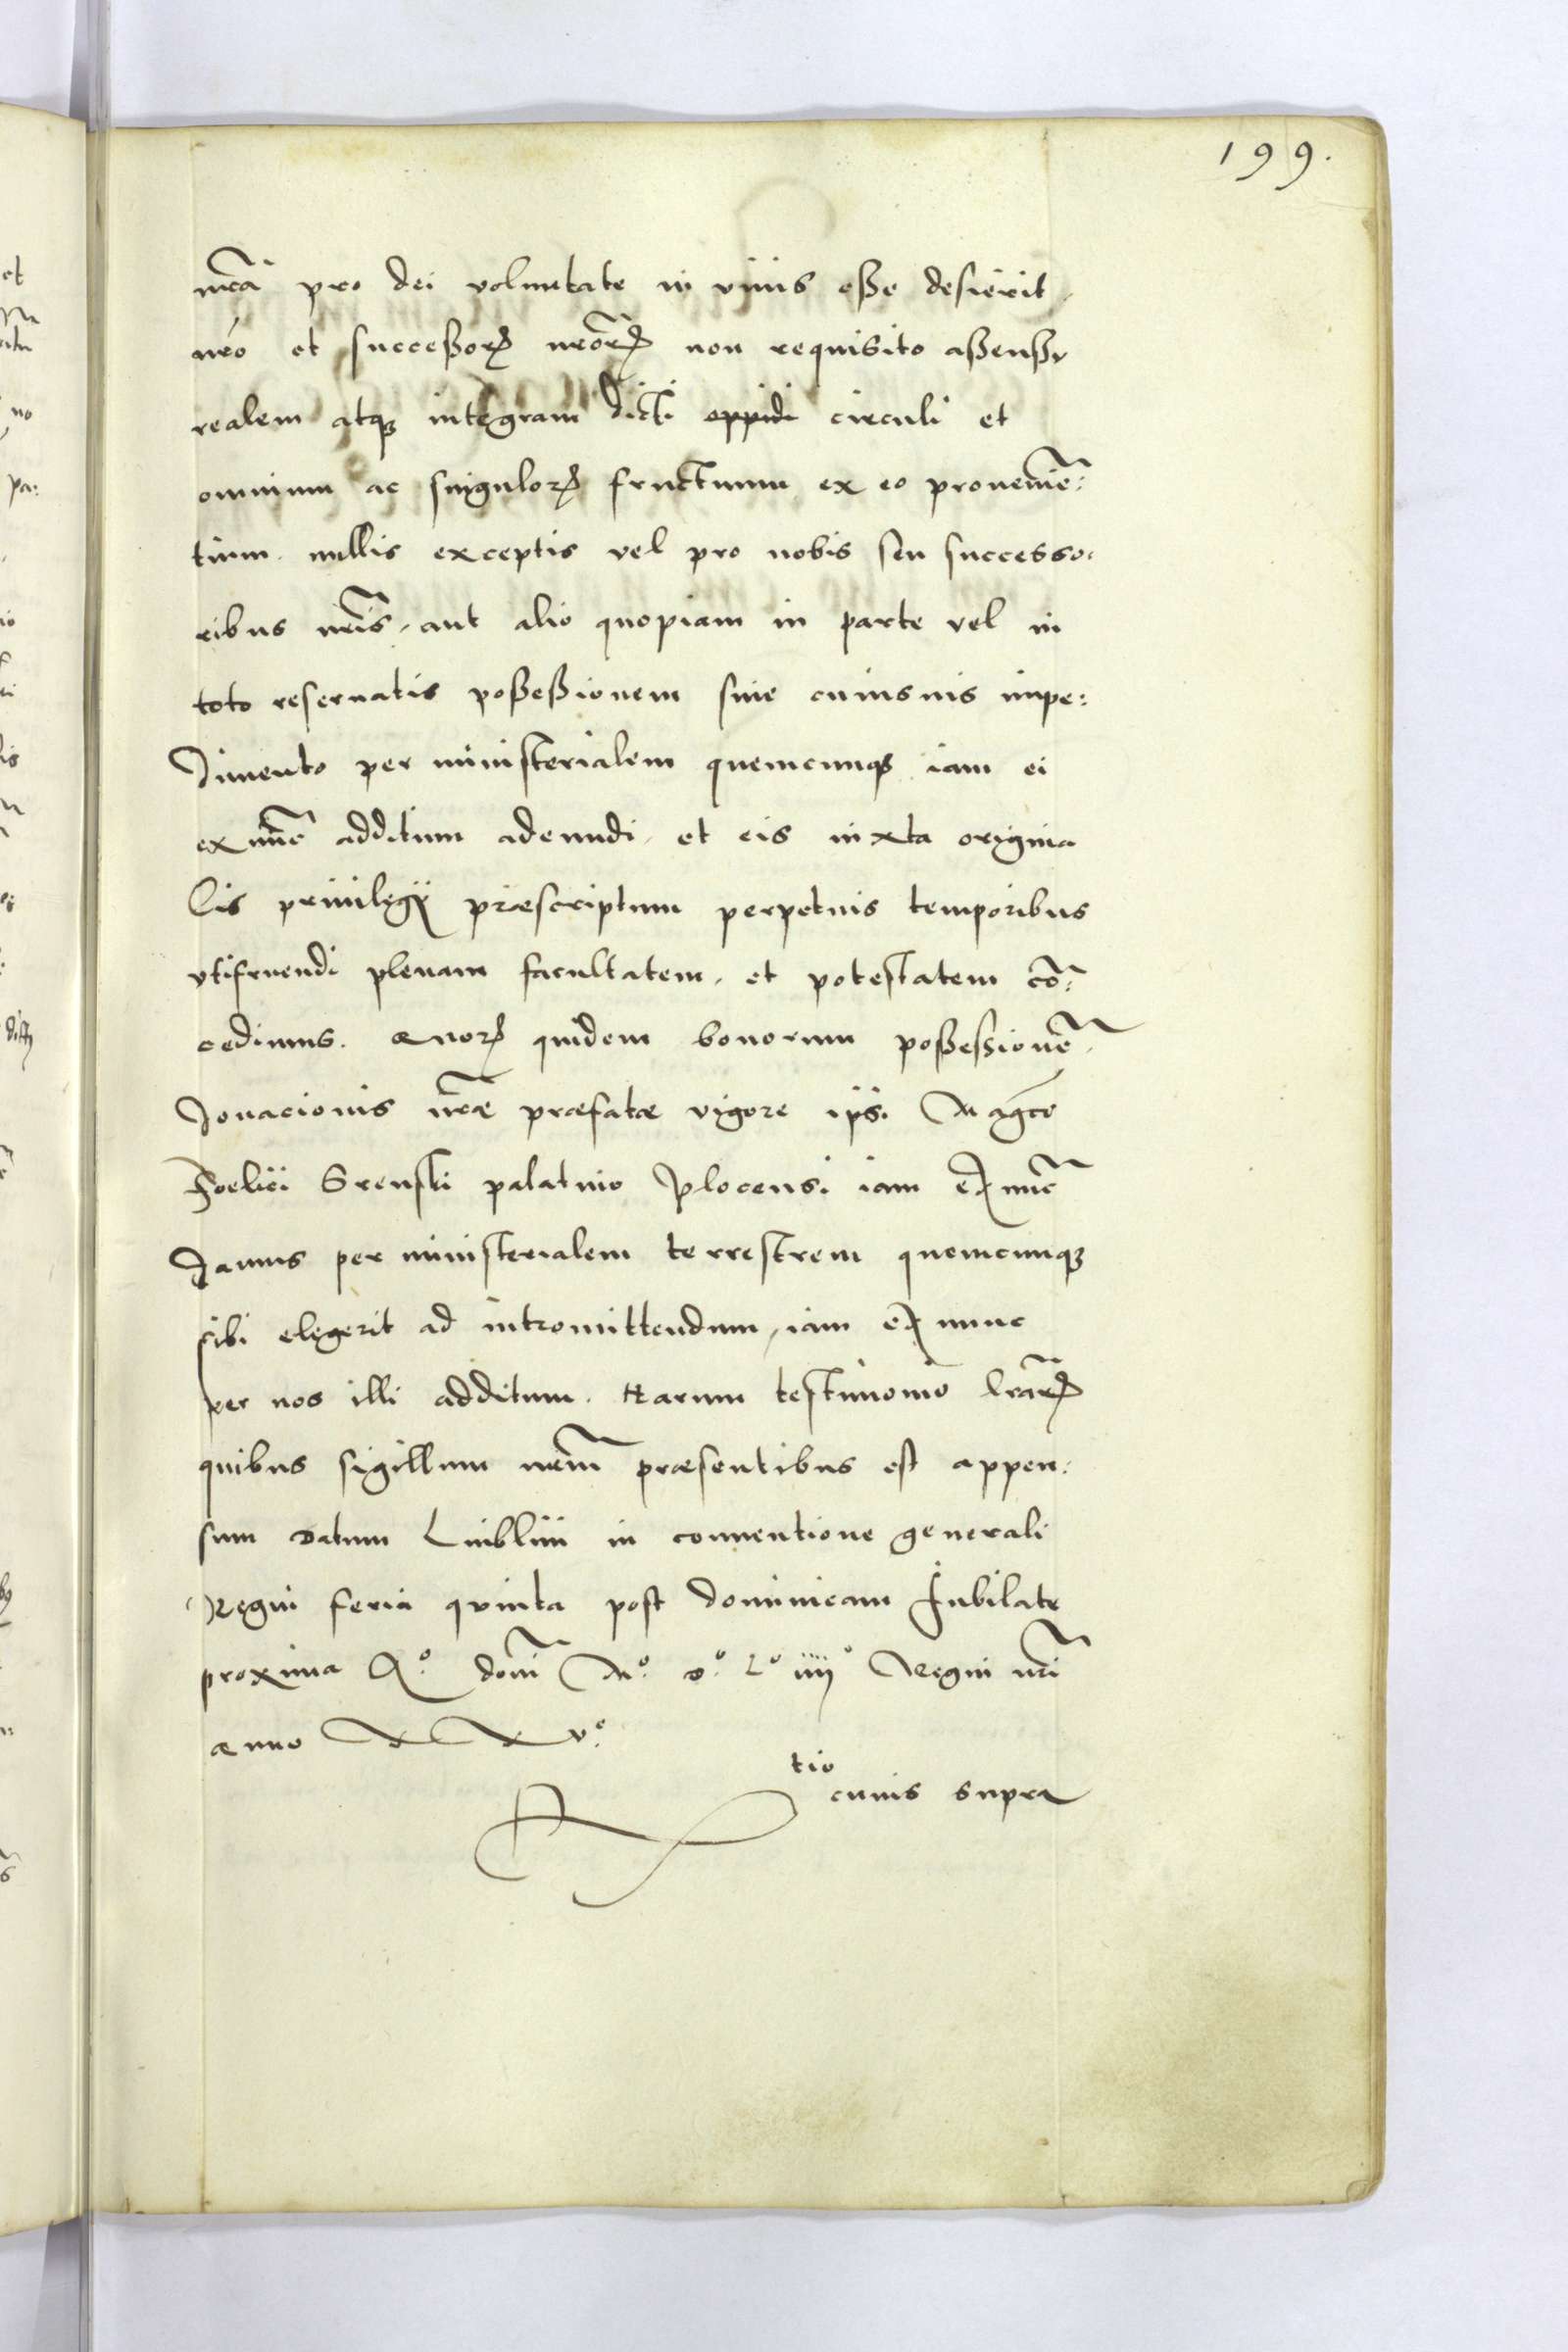 199.
nr̃a pro dei voluntate in viuis eße desierit,
nr̃o et succeßorꝝ nr̃orꝝ non requisito aßensu
realem atqꝫ integram dicti oppidi circuli et
omnium ac singulorꝝ fructuum ex eo prouenie͂:
tium. nullis exceptis vel pro nobis seu successo:
ribus nr̃is, aut alio quopiam in parte vel in
toto reseruatis poßeßionem sine cuiusuis impe:
dimento per ministerialem quemcunqꝫ iam ei
ex nũc additum adeundi, et eis iuxta origina
lis priuilegÿ præscriptum perpetuis temporibus
vtifruendi plenam facultatem, et potestatem cõ:
cedimus. Quorꝝ quidem bonorum poßessionẽ.
donacionis nr̃æ præfatæ vigore ipsi Magc̃o
Foelici Srenski palatino Plocensi iam ex nũc
damus per ministerialem terrestrem quemcunqꝫ
sibi elegerit ad intromittendum, iam ex nunc
per nos illi additum. Harum testimonio lr̃arꝝ
quibus sigillum nr̃um præsentibus est appen:
sum Datum Liublini in conuentione generali
Regni feria quinta post dominicam Iubilate
proxima Aº. domĩ Mº. dº. Lº iiiiº Regni nr̃i
anno XXvº.
tio
cuius supra